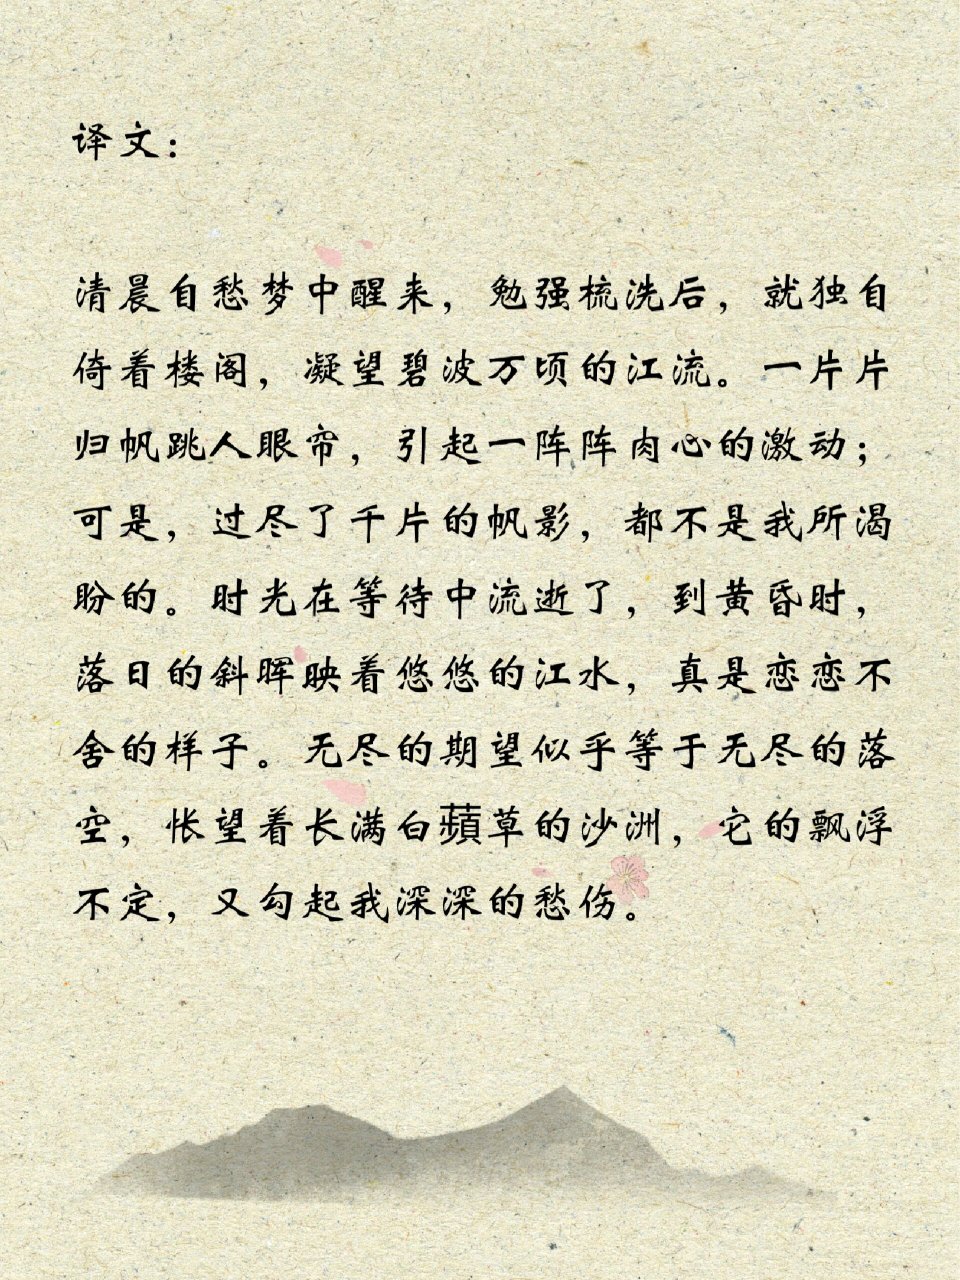 译文：
清晨自愁梦中醒来，勉强梳洗后，就独自
倚着楼阁，凝望碧波万顷的江流。一片片
归帆跳人眼帘，引起一阵阵肉心的激动；
可是，过尽了千片的帆影，都不是我所渴
盼的。时光在等待中流逝了，到黄昏时，
落日的斜晖映着悠悠的江水，真是恋恋不
舍的样子。无尽的期望似乎等于无尽的落
空，怅望着长满白蘋草的沙洲，它的飘浮
不定，又勾起我深深的愁伤。